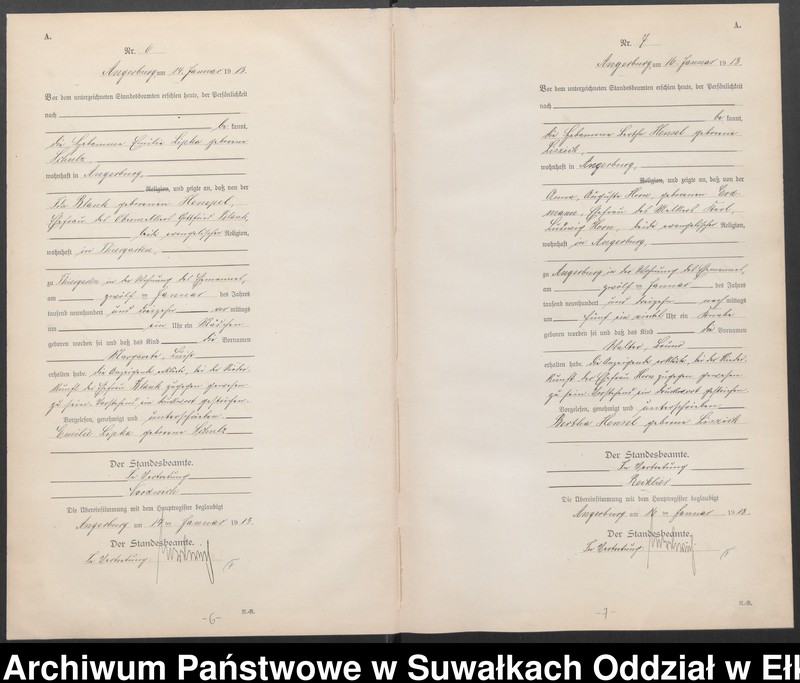 A.
Nr. 6
Angerburg am 14. Januar 1913.
Vor dem unterzeichneten Standesbeamten erschien heute, der Persönlichkeit
nach
be kannt,
die Hebamme Emilie Lipka geborene
Schulz
wohnhaft in Angerburg,
Religion, und zeigte an, daß von der
Ida Blank geborenen
Ehefrau des Obermelkers Gottfried Blank,
beide evangelischer Religion,
wohnhaft in Thiergarten,
zu Thiergarten in der Wohnung des Ehemannes,
am zwölf ten Januar des Jahres
tausend neunhundert und dreizehn vor mittags
um ein Uhr ein Mädchen
geboren worden sei und daß das Kind die Vornamen
Margarete, Luise
erhalten habe. Die Anzeigende erklärte, bei der Nieder-
kunft der Ehefrau Blank zugegen gewesen
zu sein. Vorstehend ein Druckwort gestrichen.
Vorgelesen, genehmigt und unterschrieben
Emilie Lipka geborene Schulz
Der Standesbeamte.
In Vertretung
Die Übereinstimmung mit dem Hauptregister beglaubigt
Angerburg am 14ten Januar 1913.
Der Standesbeamte.
In Vertretung
E.-R.
-6-
A.
Nr. 7
Angerburg am 16. Januar 1913.
Vor dem unterzeichneten Standesbeamten erschien heute, der Persönlichkeit
nach
be kannt,
die Hebamme Bertha Hensel geborene
wohnhaft in Angerburg,
Religion, und zeigte an, daß von der
Anna, Auguste Horn, geborenen
Ehefrau des Melkers Karl,
Ludwig Horn, beide evangelischer Religion,
wohnhaft in Angerburg,
zu Angerburg in der Wohnung des Ehemannes,
am zwölf ten Januar des Jahres
tausend neunhundert und dreizehn nach mittags
um fünf ein viertel Uhr ein Knabe
geboren worden sei und daß das Kind die Vornamen
Walter, Bruno
erhalten habe. Die Anzeigende erklärte, bei der Nieder-
kunft der Ehefrau Horn zugegen gewesen
zu sein. Vorstehend ein Druckwort gestrichen.
Vorgelesen, genehmigt und unterschrieben
Bertha Hensel geborene
Der Standesbeamte.
In Vertretung
Die Übereinstimmung mit dem Hauptregister beglaubigt
Angerburg am 16ten Januar 1913.
Der Standesbeamte.
In Vertretung
E.-R.
-7-
Archiwum Państwowe w Suwałkach Oddział w Ełk